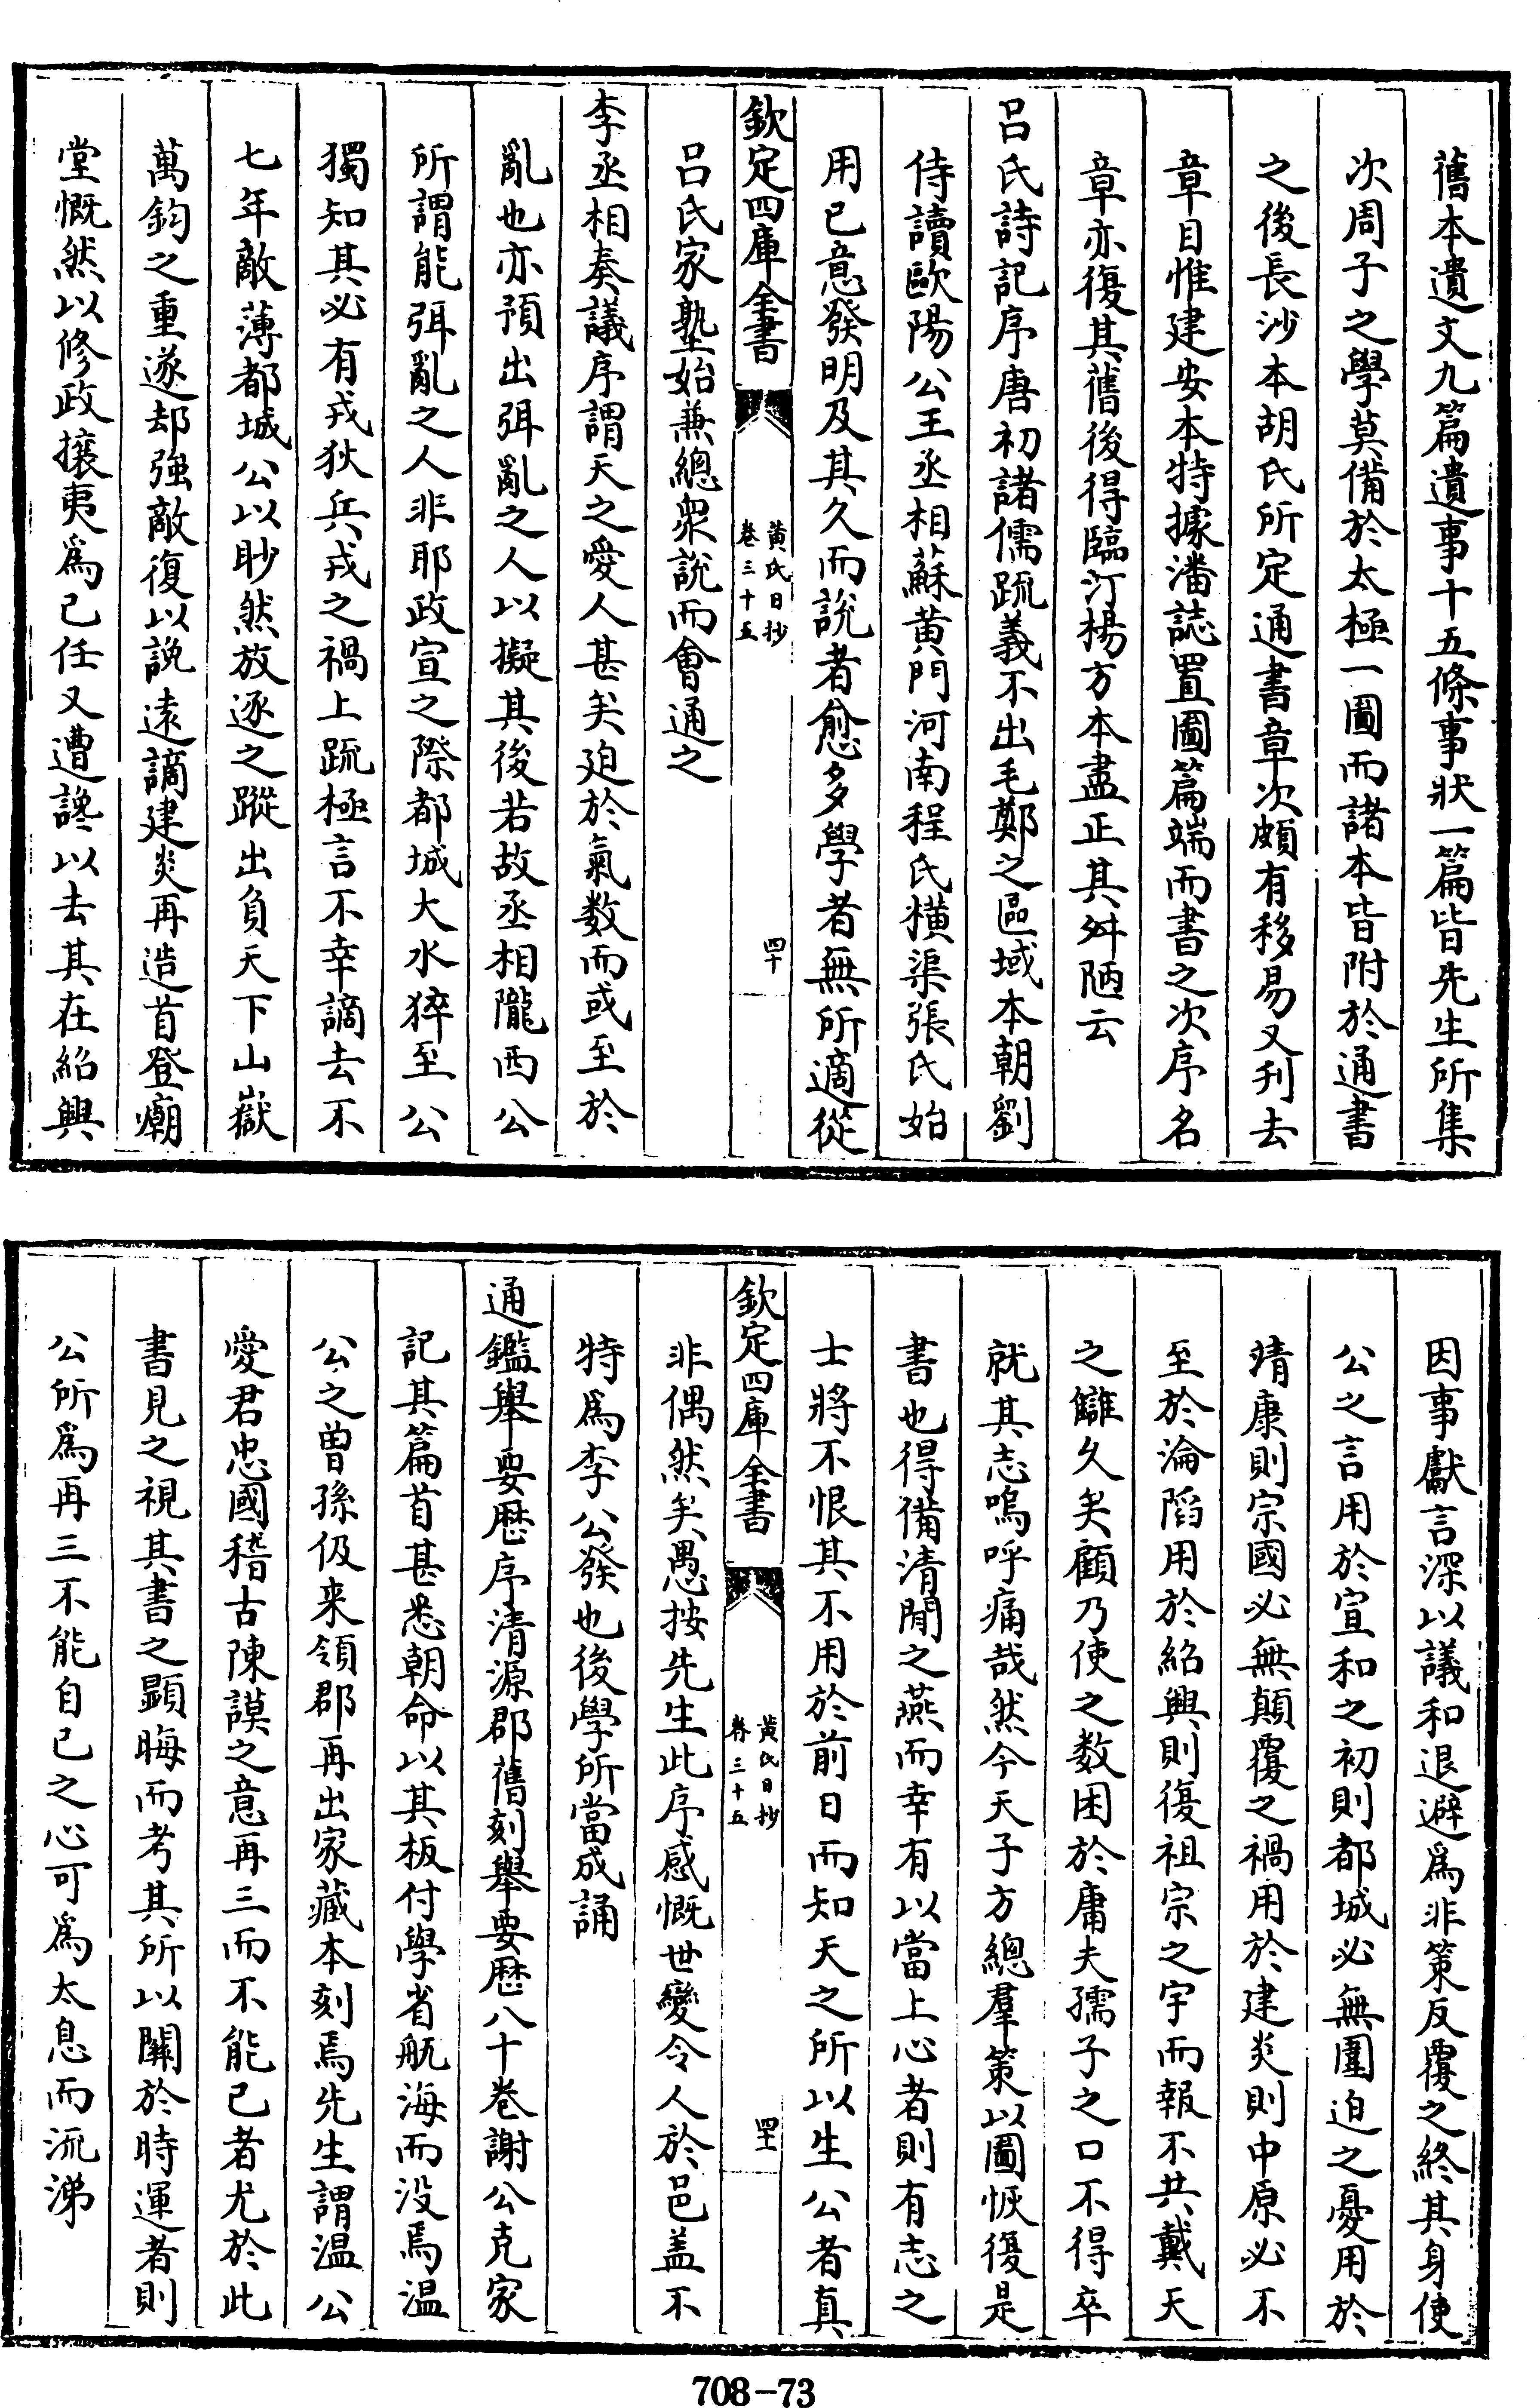 舊本遺文九篇遺事十五條事狀一篇皆先生所集
次周子之學莫備於太極一圖而諸本皆附於通書
之後長沙本胡氏所定通書章次頗有移易又刋去
章目惟建安本特據潘誌置圖篇端而書之次序名
章亦復其舊後得臨汀楊方本盡正其舛陋云
吕氏詩記序唐初諸儒疏義不出毛鄭之區域本朝劉
侍讀歐陽公王丞相蘇黄門河南程氏横渠張氏始
用已意發明及其久而説者愈多學者無所適從
欽定四庫全書
黄氏日抄
卷三十五
四十
吕氏家塾始兼總衆説而會通之
李丞相奏議序謂天之愛人甚矣廹於氣数而或至於
亂也亦預出弭亂之人以擬其後若故丞相隴西公
所謂能弭亂之人非耶政宣之際都城大水猝至公
獨知其必有戎狄兵戎之禍上疏極言不幸謫去不
七年敵薄都城公以眇然放逐之蹤出負天下山嶽
萬鈞之重遂却強敵復以説遠謫建炎再造首登廟
堂慨然以修政攘夷爲已任又遭讒以去其在紹興
因事獻言深以議和退避爲非策反覆之終其身使
公之言用於宣和之初則都城必無圍迫之憂用於
靖康則宗國必無顛覆之禍用於建炎則中原必不
至於淪䧟用於紹興則復祖宗之宇而報不共戴天
之讎久矣顧乃使之数困於庸夫孺子之口不得卒
就其志嗚呼痛哉然今天子方總羣策以圖恢復是
書也得備清閒之燕而幸有以當上心者則有志之
士將不恨其不用於前日而知天之所以生公者真
欽定四庫全書
黄氏日抄
卷三十五
四十一
非偶然矣愚按先生此序感慨世變令人於邑盖不
特爲李公發也後學所當成誦
通鑑舉要歴序清源郡舊刻舉要歴八十卷謝公克家
記其篇首甚悉朝命以其板付學省航海而没焉温
公之曽孫伋来領郡再出家藏本刻焉先生謂温公
愛君忠國稽古陳謨之意再三而不能已者尤於此
書見之視其書之顯晦而考其所以關於時運者則
公所爲再三不能自已之心可爲太息而流涕
708-73